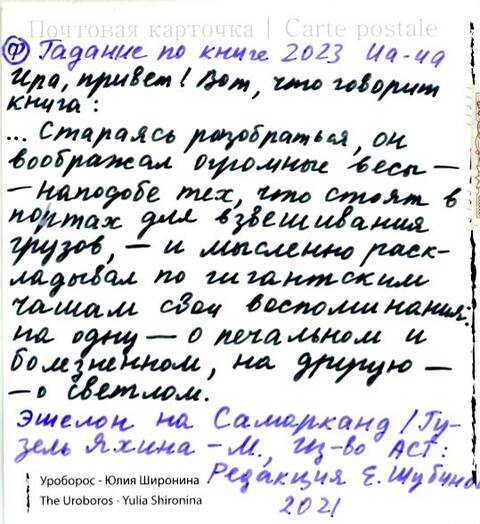 Почтовая карточка | Carte postale
Ф Гадание по книге 2023 Иа-иа
Ира, привет! Вот, что говорит
книга:
... Стараясь разобраться, он
воображал огромные весы —
— наподобе тех, что стоят в
портах для взвешивания
грузов, — и мысленно раск-
ладывал по гигантским
чашам свои воспоминания:
на одну — о печальном и
болезненном, на другую —
— о светлом.
Эшелон на Самарканд / Гу-
зель Яхина — М., Из-во АСТ:
Редакция Е. Шубиной
2021
Уроборос - Юлия Широнина
The Uroboros - Yulia Shironina